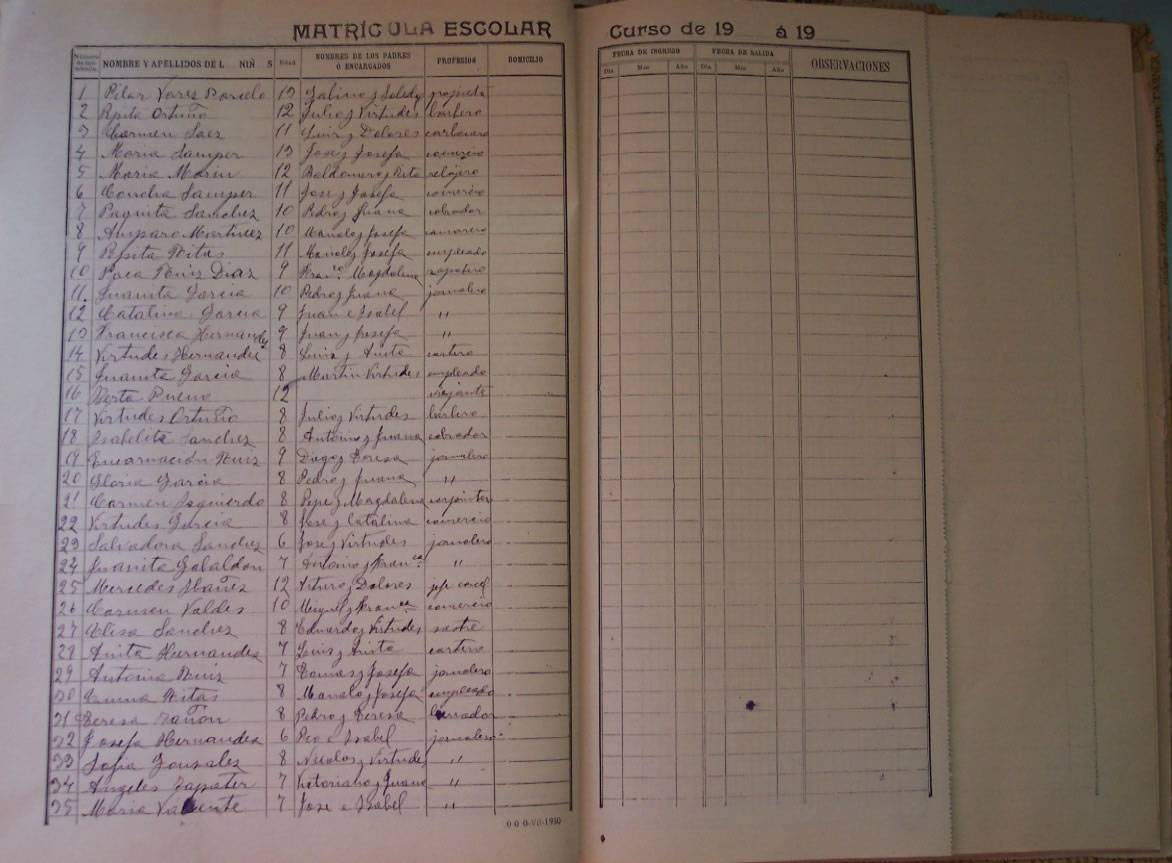 MATRÍCULA ESCOLAR Curso de 19 á 19
Número de matrícula NOMBRE Y APELLIDOS DE L NIÑ S Edad NOMBRES DE LOS PADRES Ó ENCARGADOS PROFESIÓN DOMICILIO
FECHA DE INGRESO FECHA DE SALIDA OBSERVACIONES
Día Mes Año Día Mes Año
1 Pilar 13
2 Pepita Ortuño 12 Julio y Virtudes barbero
3 Carmen Saez 11 Luis y Dolores carbonero
4 Maria Samper 13 Jose y Josefa comercio
5 Maria Marin 12 Baldomero y Rita relojero
6 Concha Samper 11 Jose y Josefa comercio
7 Paquita Sanchez 10 Pedro y Juana cobrador
8 Amparo Martinez 10 Manolo y Josefa camarero
9 Pepita 11 Manolo y Josefa empleado
10 Paca Ruiz Diaz 9 Franco Magdalena zapatero
11. Juanita Garcia 10 Pedro y Juana jornalero
12 Catalina Garcia 9 Juan e Isabel "
13 Francisca Hernandez 9 Juan y Josefa "
14 Virtudes Hernandez 8 Luis y Anita cartero
15 Juanita Garcia 8 Martin Virtudes empleado
16 Berta 12 viajante
17 Virtudes Ortuño 8 Julio y Virtudes barbero
18 Isabelita Sanchez 8 Antonio y Juana cobrador
19 Encarnación Ruiz 9 Diego y Teresa jornalero
20 Gloria Garcia 8 Pedro y Juana "
21 Carmen Izquierdo 8 Pepe y Magdalena carpintero
22 Virtudes Garcia 8 Jose y Catalina comercio
23 Salvadora Sanchez 6 Jose y Virtudes jornalero
24 Juanita Gabaldon 7 Antonio y Franca "
25 Mercedes Ibañez 12 Arturo y Dolores
26 Carmen Valdes 10 Miguel y Franca comercio
27 Elisa Sanchez 8 Eduardo y Virtudes sastre
28 Anita Hernandez 7 Luis y Anita cartero
29 Antonia Ruiz 7 Tomas y Josefa jornalero
30 Emma 8 Manolo y Josefa empleado
31 Teresa 8 Pedro y Teresa
32 Josefa Hernandez 6 Pio e Isabel jornalero
33 Sofia Gonzalez 8 Nicolas y Virtudes "
34 Angeles Zapater 7 Victoriano y Juana "
35 Maria Valiente 7 Jose e Isabel "